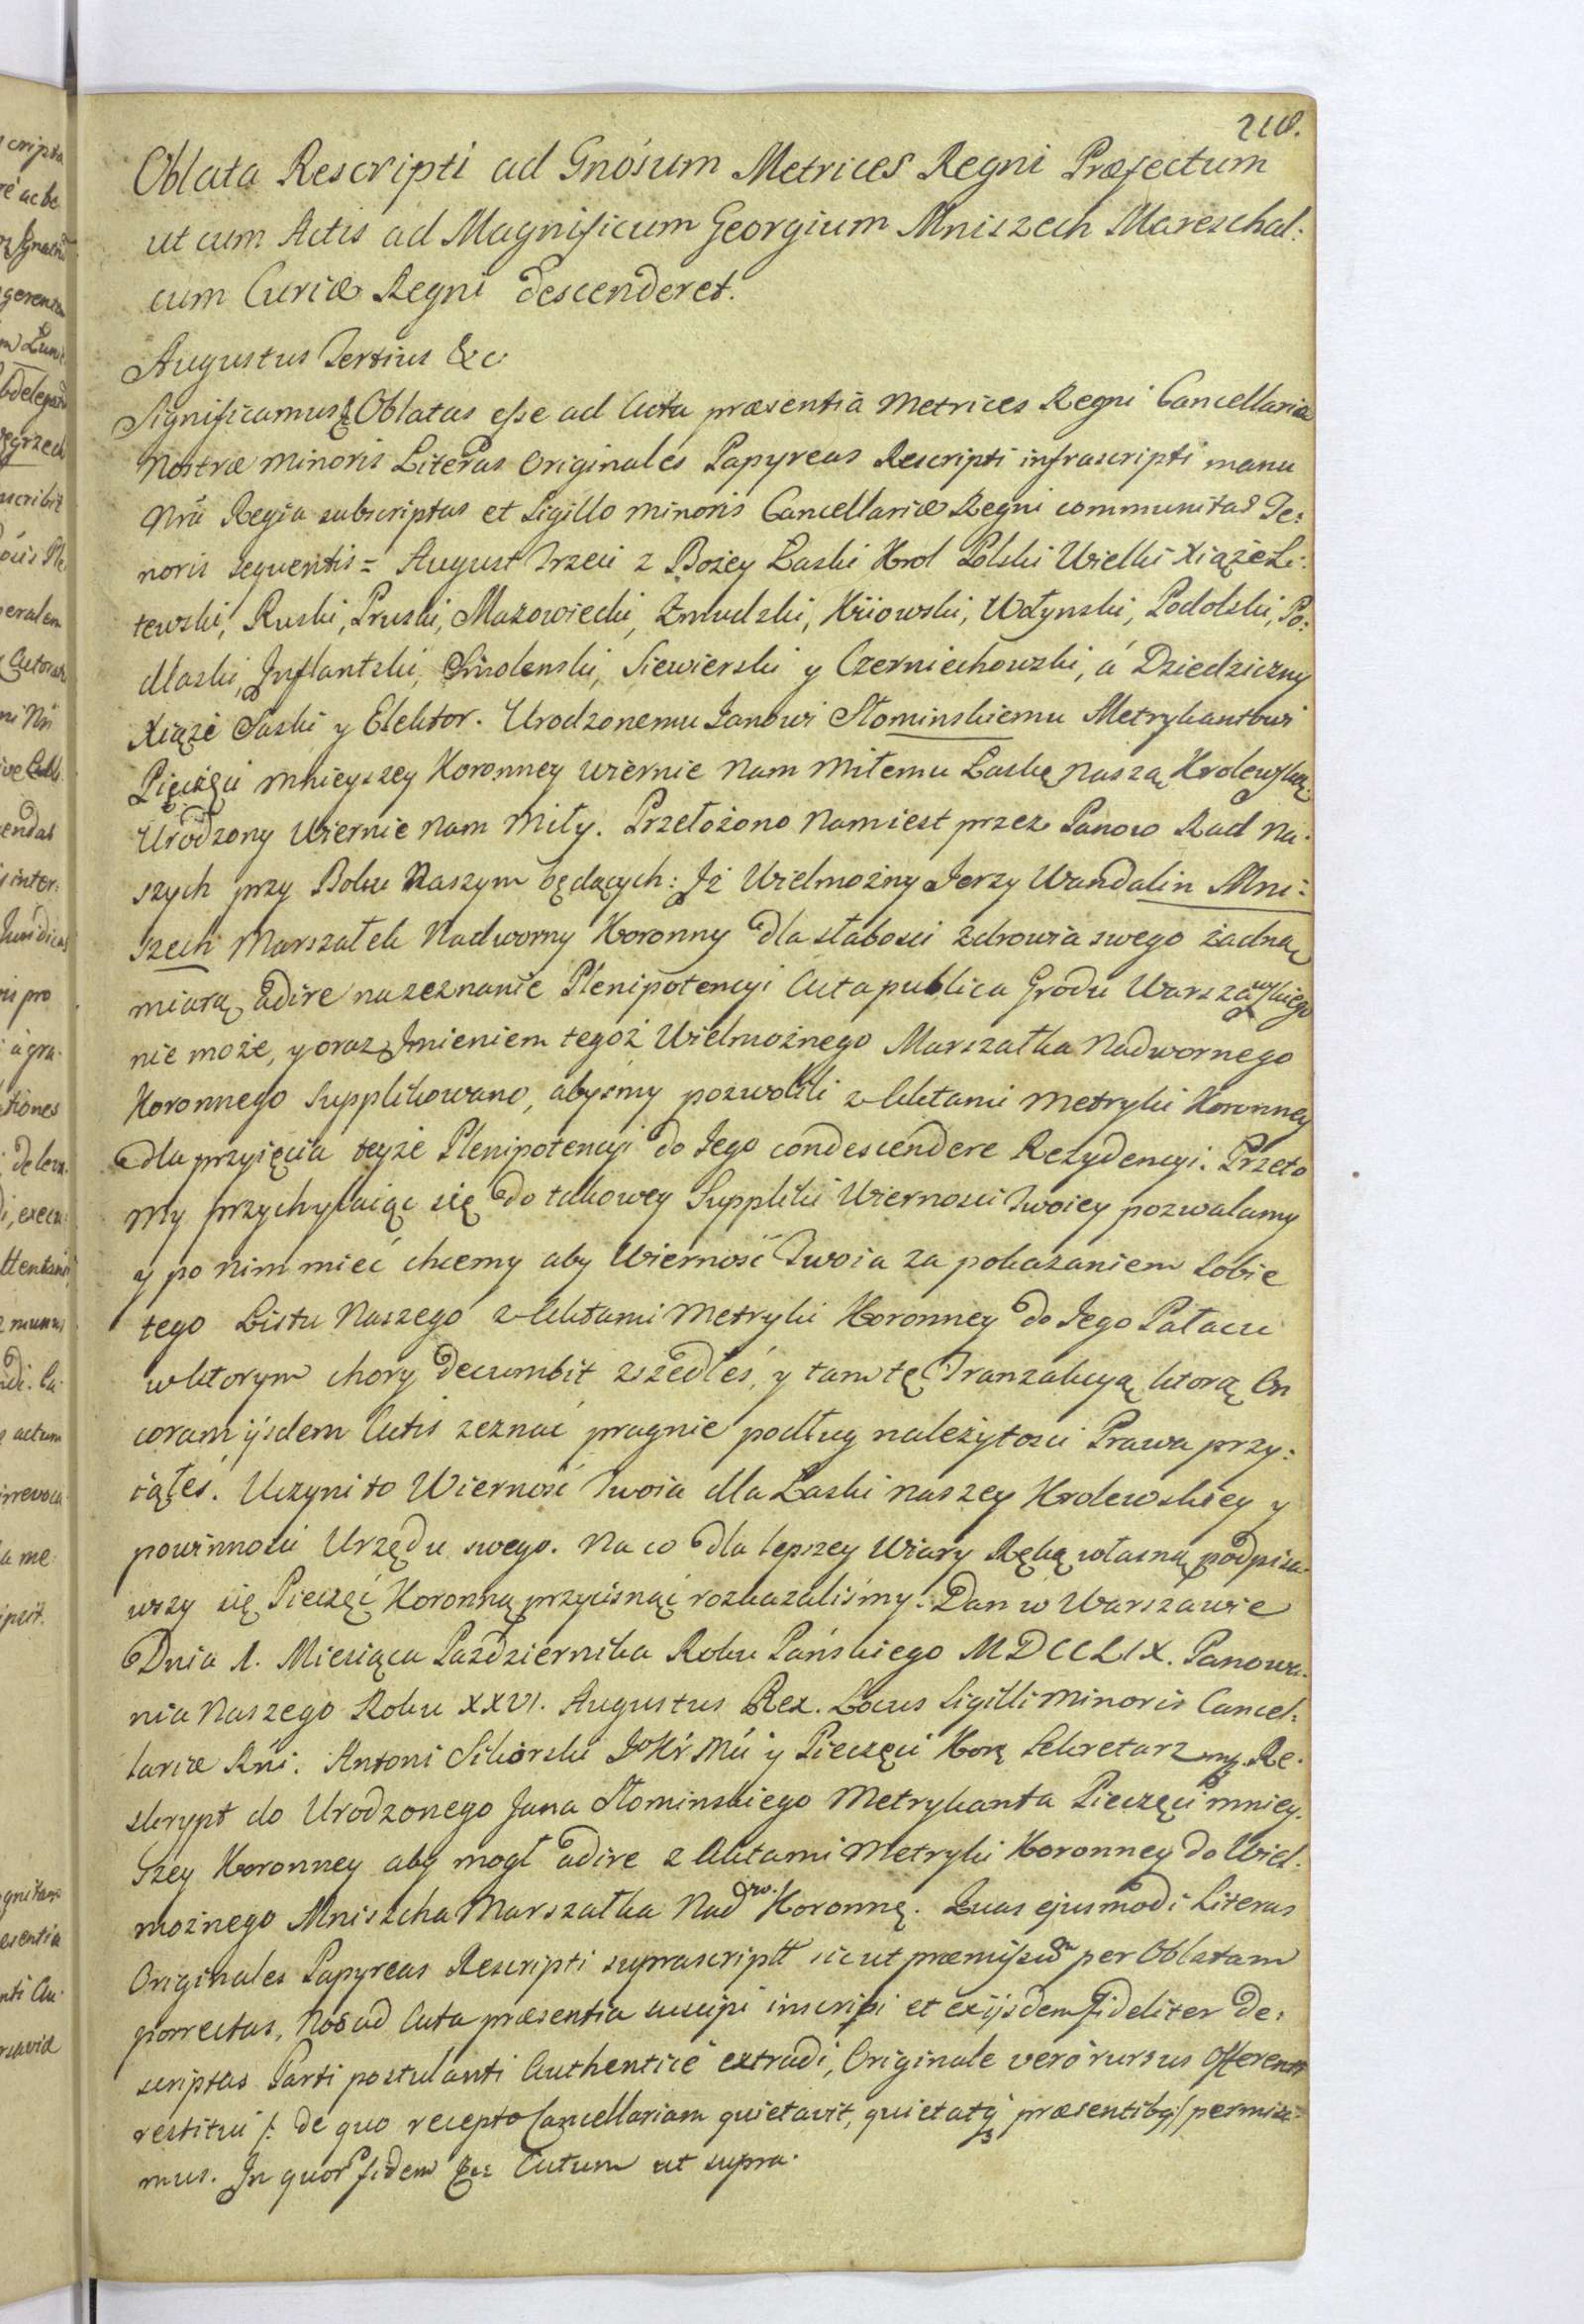 218.
Oblata Rescripti ad Gnosum Metrices Regni Præfectum
ut cum Actis ad Magnificum Georgium Mniszech Mareschal:
cum Curiæ Regni descenderet.
Augustus Tertius &c
Significamus Oblatas esse ad Acta præsentia Metrices Regni Cancellariæ
Nostræ Minoris Literas Originales Papyreas Rescripti infrascripti manu
Nrã Regia subscriptas et Sigillo minoris Cancellariæ Regni communitas Te:
noris sequentis = August Trzeci z Bożey Łaski Krol Polski Wielki Xiąże Li:
tewski, Ruski, Pruski, Mazowiecki, Zmudzki, Kiiowski, Wołynski, Podolski, Po:
dlaski, Inflantski, Smolenski, Siewierski y Czerniechowski, á Dziedziczny
Xiąże Saski y Elektor. Urodzonemu Janowi Słominskiemu Metrykantowi
Pieczęci mnieyszey Koronney wiernie Nam miłemu Łaskę naszą Krolewską.
Urodzony Wiernie Nam Miły. Przełożono Nam iest przez Panow Rad Na:
szych przy Boku Naszym będących: Iż Wielmożny Jerzy Wandalin Mni:
szech Marszałek Nadworny Koronny dla słabosci zdrowia swego żadną
miarą adire na zeznanie Plenipotencyi Acta publica Grodu Warszawskiego
nie może, y oraz Imieniem tegoż Wielmożnego Marszałka Nadwornego
Koronnego supplikowano, abysmy pozwolili z Aktami Metryki Koronney
dla przyięcia teyże Plenipotencyi do Jego condescendere Rezydencyi. Przeto
My przychylaiąc się do takowey Suppliki Wiernosci Twoiey pozwalamy
y po nim mieć chcemy aby Wierność Twoia za pokazaniem sobie
tego Listu Naszego z Aktami Metryki Koronney do Jego Pałacu
w ktorym chory decumbit zszedłeś, y tam tę Tranzakcyą ktorą On
coram ijsdem Actis zeznać pragnie podług należytosci Prawa przy:
iąłeś. Uczyni to Wierność Twoia dla Łaski naszey Krolewskiey y
powinnosci Urzędu swego. Na co dla lepszey Wiary Ręką własną podpisa:
wszy się Pieczęć Koronną przycisnąć rozkazalismy. Dan w Warszawie
Dnia 1. Miesiąca Pazdziernika Roku Pańskiego MDCCLIX. Panowa:
nia Naszego Roku XXVI. Augustus Rex. Locus Sigilli Minoris Cancel:
lariæ Rni. Antoni Sikorski JoKr Mci y Pieczęci Korę Sekretarz mp. Re:
skrypt do Urodzonego Jana Słominskiego Metrykanta Pieczęci mniey:
szey Koronney aby mogł adire z Aktami Metryki Koronney do Wiel:
możnego Mniszcha Marszałka Nadw. Koronnę. Quas ejusmodi Literas
Originales Papyreas Rescripti suprascriptt sic ut præmissũ per Oblatam
porrectas, Nos ad Acta præsentia suscipi inscribi et ex ijsdem fideliter de:
scriptas Parti postulanti Authenticè extradi, Originale verò rursus Offerentt
restitui /: de quo recepto Cancellariam quietavit, quietatq præsentibq :/ permisi:
mus. In quor fidem Actum ut supra.